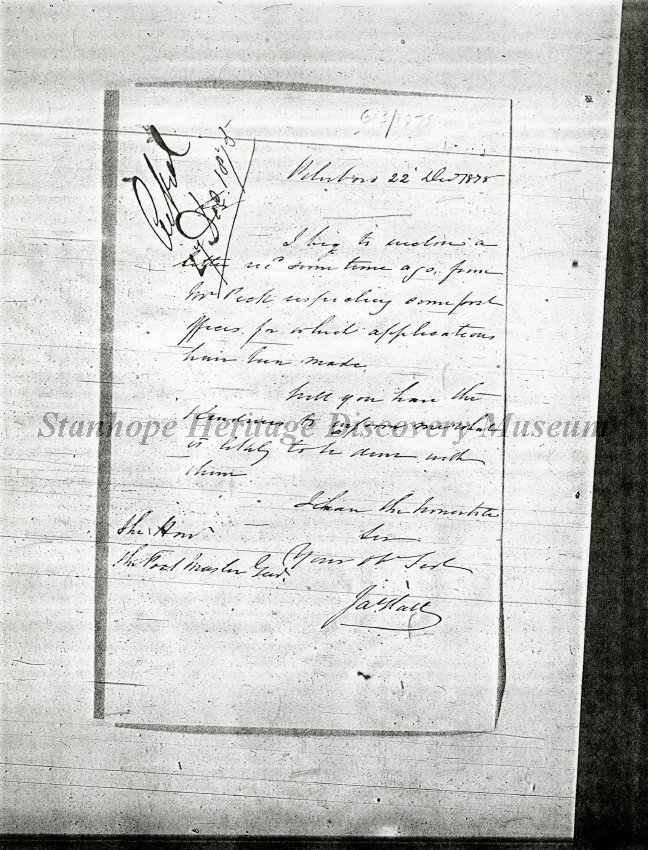 613/1875
Peterboro 22d Dec 1875
I beg to enclose a
letter recd some time ago, from
Mr Peck respecting some post
offices for which applications
have been made.
Will you have the
Kindness to inform me what
is likely to be done with
them
I have the honor to be
Sir
Your Obt Servt
Jas Hall
The Honr
The Post Master Genl.
Stanhope Heritage Discovery Museum